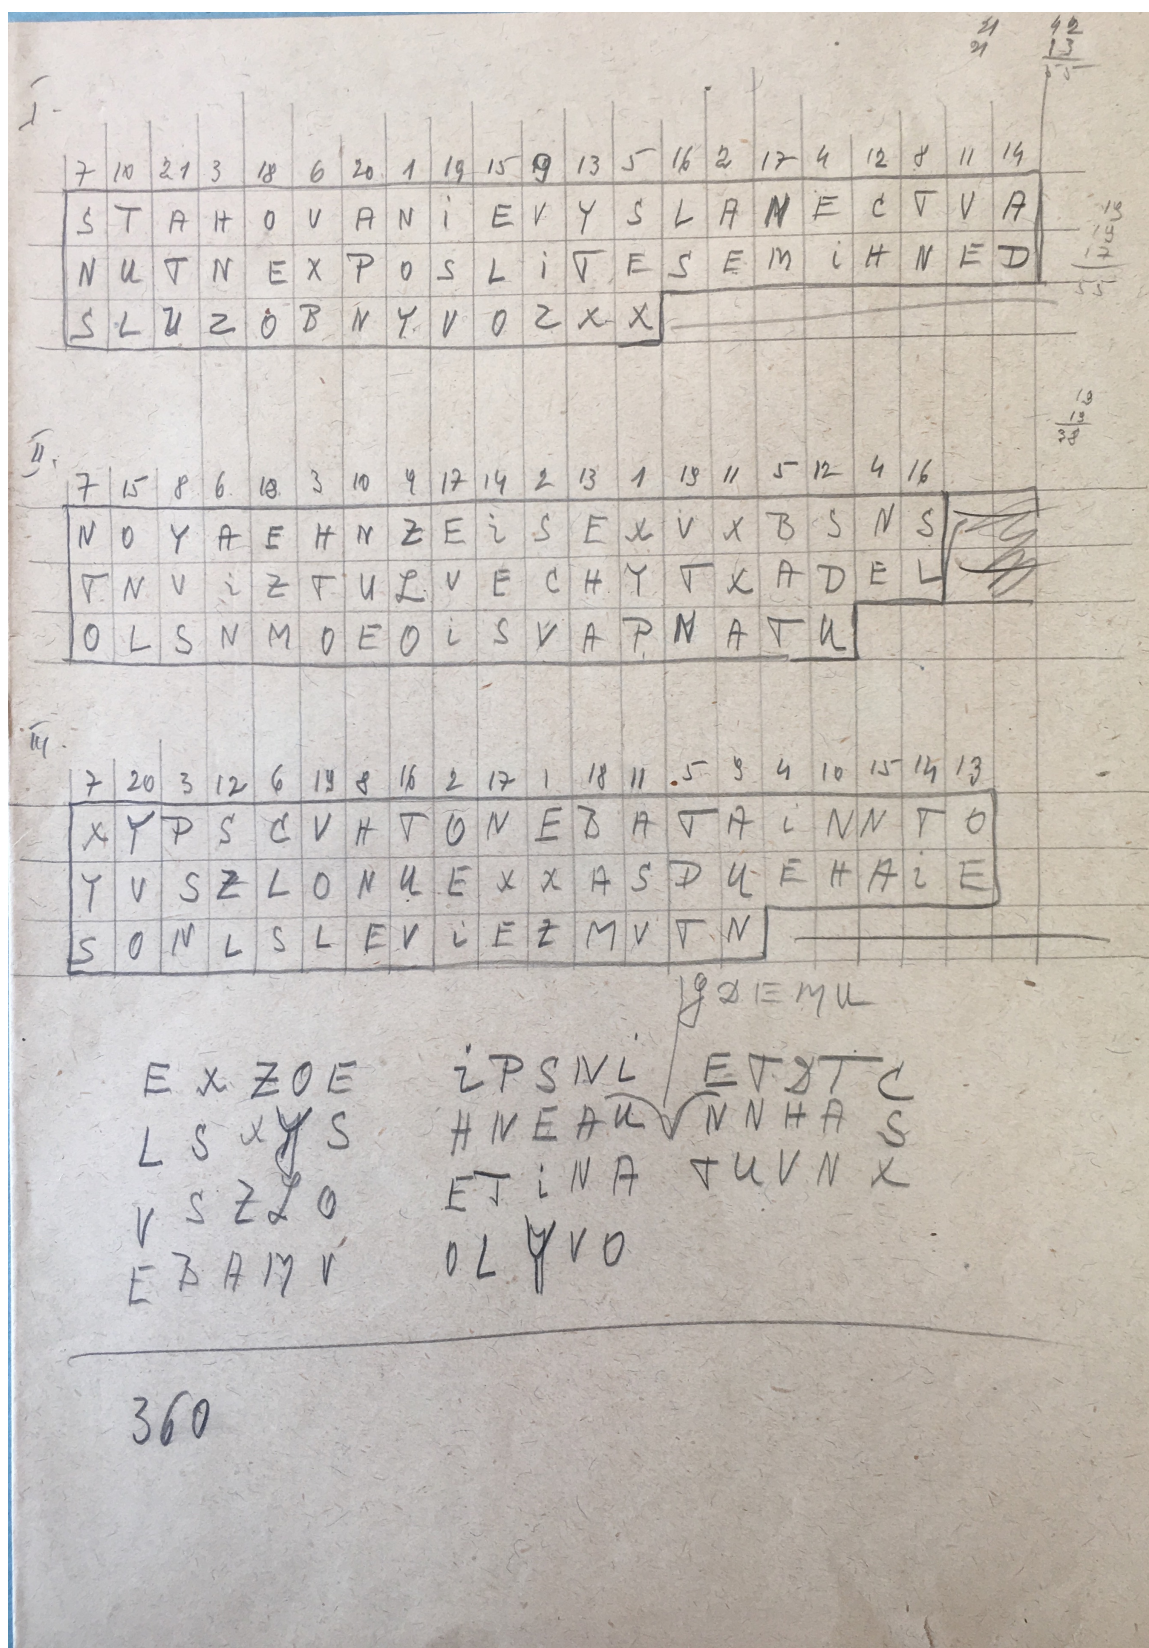 21 42
21 13
55
I.
7 10 21 3 18 6 20 1 19 15 9 13 5 16 2 17 4 12 8 11 14
S T A H O V A N i E V Y S L A N E C T V A
N U T N E X P O S L i T E S E M i H N E D
S L U Z O B N Y V O Z X X
55
19
19
38
II.
7 15 8 6 18 3 10 9 17 14 2 13 1 19 11 5 12 4 16
N O Y A E H N Z E i S E X V X B S N S
T N V i Z T U L V E C H Y T X A D E L
O L S N M O E O i S V A P N A T U
III.
7 20 3 12 6 19 8 16 2 17 1 18 11 5 9 4 10 15 14 13
X Y P S C V H T O N E B A T A i N N T O
Y V S Z L O N U E X X A S D U E H A i E
S O N L S L E V i E Z M V T N
J D E M U
E X Z O E i P S N i E T D T C
L S X Y S H N E A U N N H A S
V S Z L O E T i N A T U V N X
E B A M V O L Y V O
360